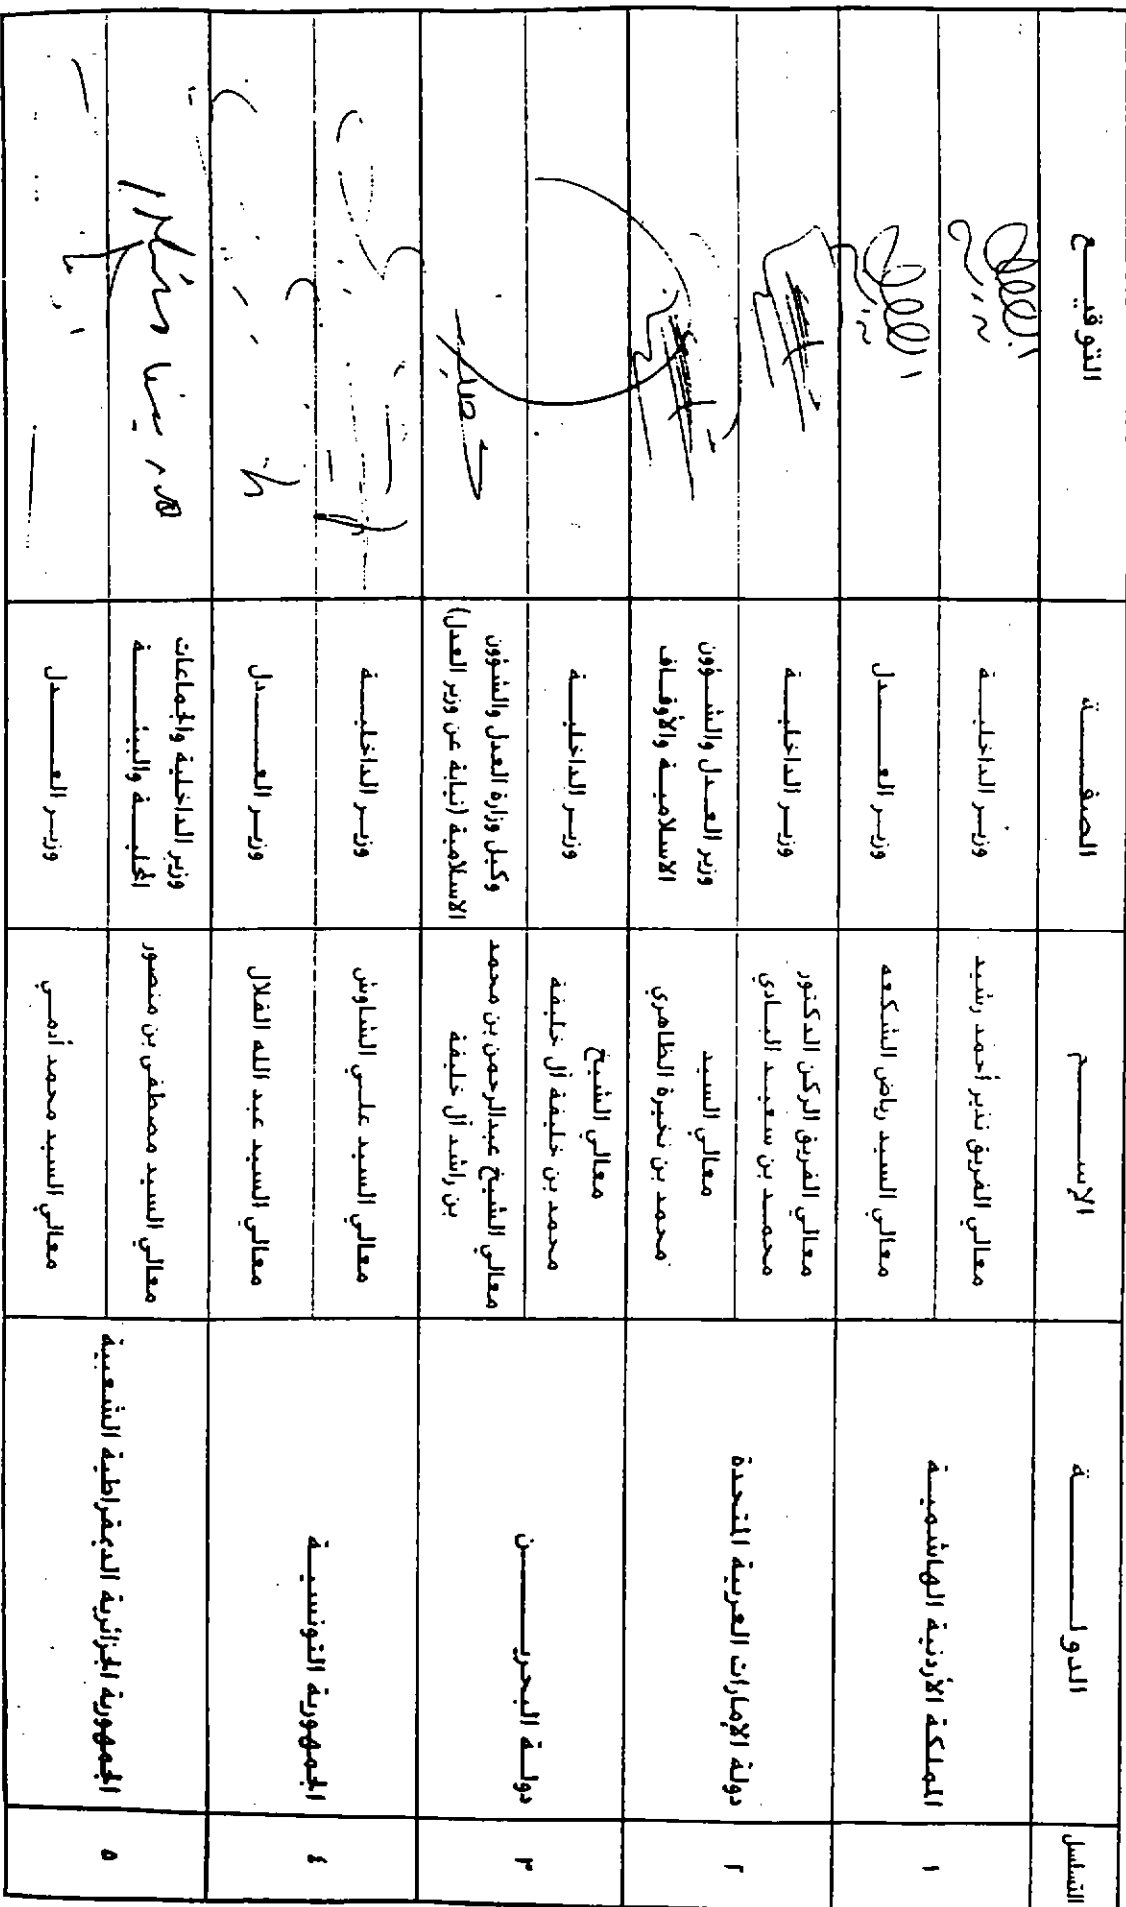 التسلسل
الدولـــــــــة
الإســــــم
الصفــــــة
التوقيـــع
١
المملكة الأردنية الهاشميــة
معالي الفريق نذير أحمد رشيد
وزيــر الداخليـــة
معالي السيد رياض الشكعه
وزيــر العـــــدل
٢
دولة الإمارات العربية المتحدة
معالي الفريق الركن الدكتور
محمــد بن سعيــد البــادي
وزيــر الداخليـــة
معالي السيد
محمد بن نخيرة الظاهري
وزير العــدل والشــؤون
الاسلاميــة والأوقــاف
٣
دولــة البحريــــــن
معالي الشيخ
محمد بن خليفة آل خليفة
وزيــر الداخليـــة
معالي الشيخ عبدالرحمن بن محمد
بن راشد آل خليفة
وكيل وزارة العدل والشؤون
الاسلامية (نيابة عن وزير العدل)
٤
الجمهورية التونسيــة
معالي السيد علــي الشاوش
وزيــر الداخليـــة
معالي السيد عبد الله القلال
وزيــر العـــــدل
٥
الجمهورية الجزائرية الديمقراطية الشعبية
معالي السيد مصطفى بن منصور
وزير الداخلية والجماعات
المحليــــة والبيئــــــة
معالي السيد محمد أدمــي
وزيــر العـــــدل